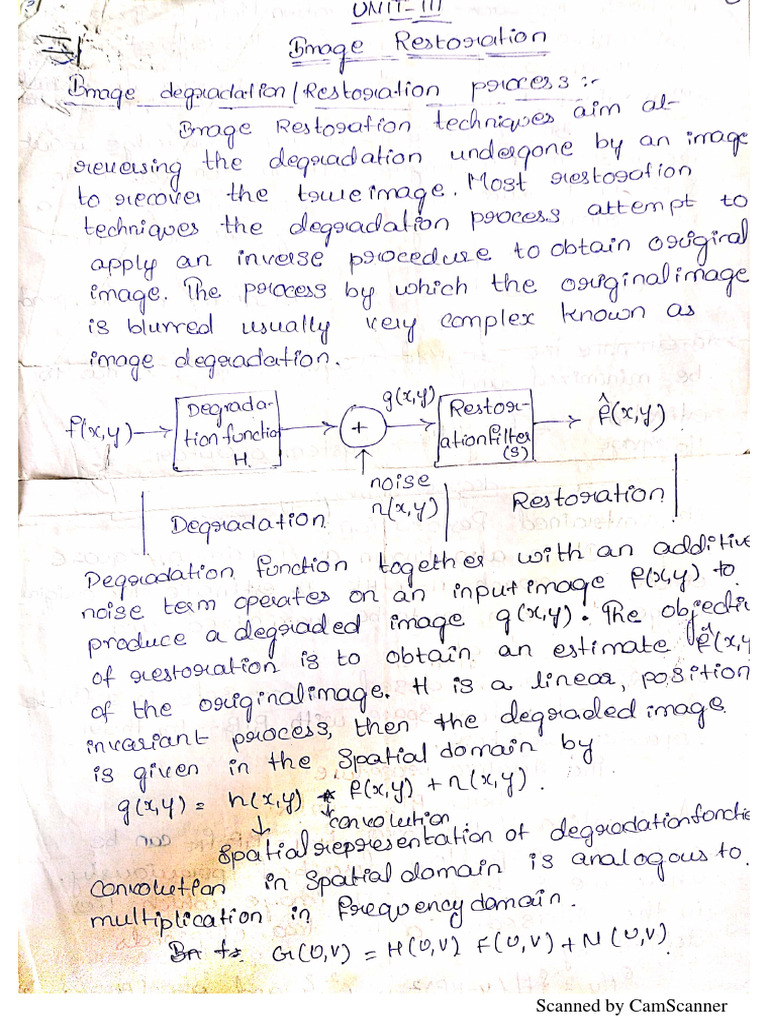 UNIT-III
Image Restoration
Image degradation/Restoration process :-
Image Restoration techniques aim at
reversing the degradation undergone by an image
to recover the true image. Most restoration
techniques the degradation process attempt to
apply an inverse procedure to obtain original
image. The process by which the original image
is blurred usually very complex known as
image degradation.
f(x,y) → Degrada-tion function H → + → g(x,y) Restor-ation Filter (S) → f̂(x,y)
noise
n(x,y)
Degradation Restoration
Degradation function together with an additive
noise term operates on an input image f(x,y) to
produce a degraded image g(x,y). The objectiv
of restoration is to obtain an estimate f̂(x,y
of the original image. H is a linear, position
invariant process, then the degraded image
is given in the spatial domain by
g(x,y) = h(x,y) * f(x,y) + n(x,y).
↓ ↓convolution.
spatial representation of degradation functio
Convolution in spatial domain is analogous to
multiplication in frequency domain.
G(U,V) = H(U,V) F(U,V) + N(U,V).
Scanned by CamScanner